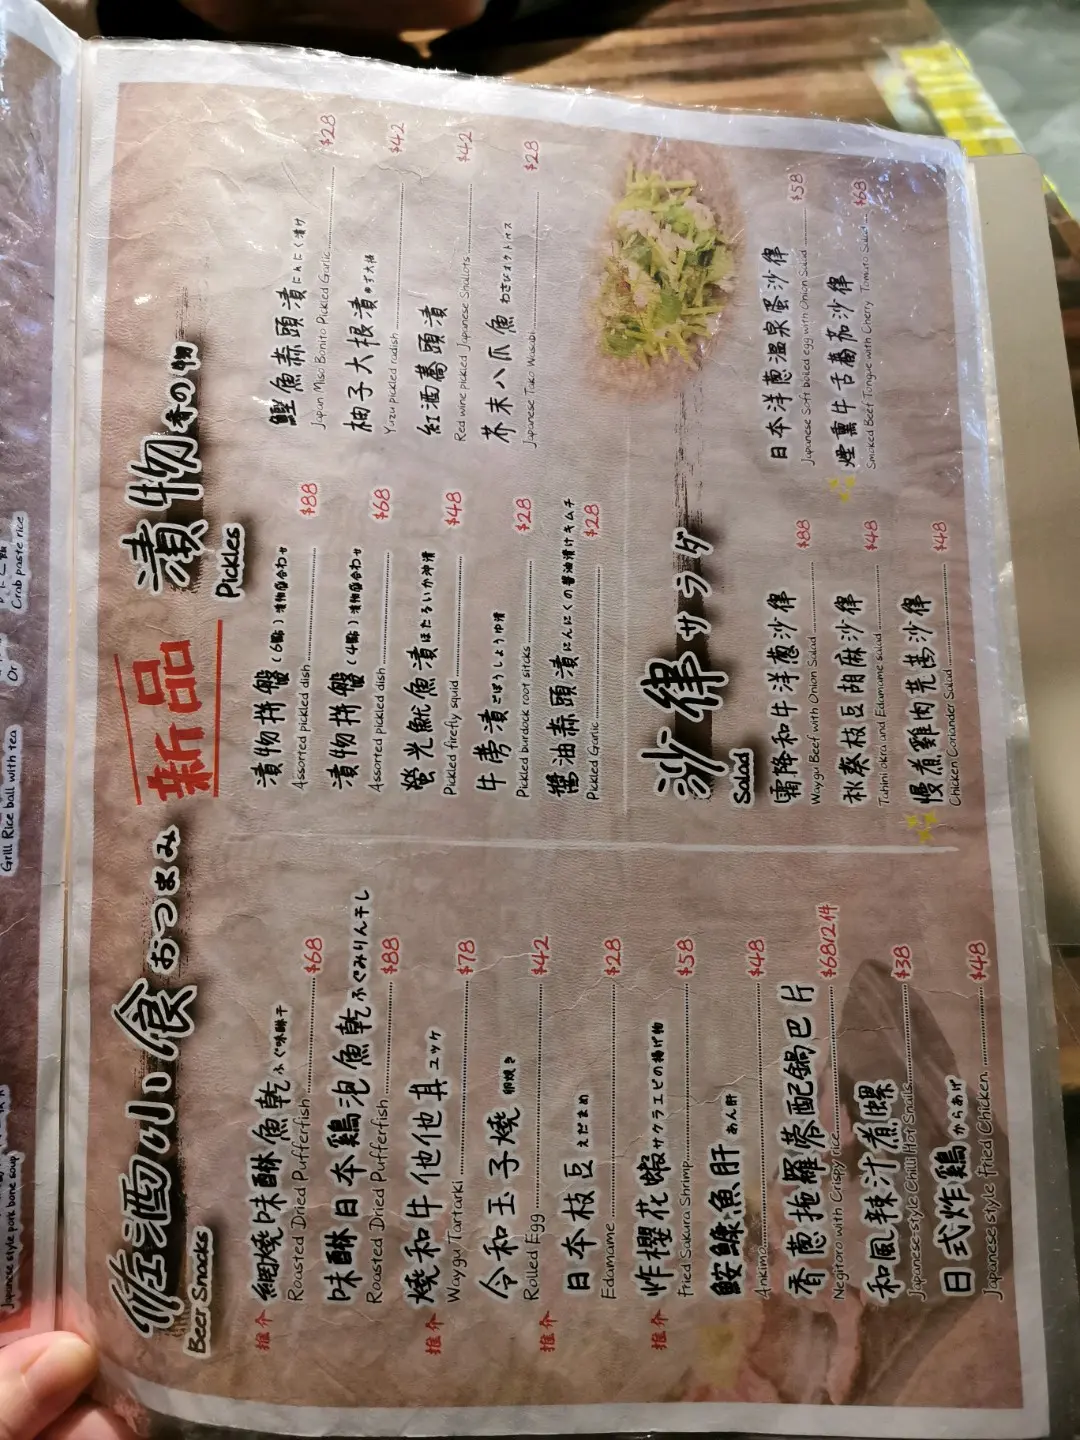 佐酒小食 おつまみ
Beer Snacks
推介 網燒味醂魚乾 ふぐ味醂干
Roasted Dried Pufferfish $68
味醂日本鷄泡魚乾 ふぐみりん干し
Roasted Dried Pufferfish $88
推介 燒和牛他他 ユッケ
Waygu Tartarki $78
推介 令和玉子燒 卵焼き
Rolled Egg $42
日本枝豆 えだまめ
Edamame $28
推介 炸櫻花蝦 サクラエビの揚げ物
Fried Sakura Shrimp $58
鮟鱇魚肝 あん肝
Ankimo $48
香蔥拖羅蓉配鍋巴片
Negitoro with Crispy rice $68/2件
和風辣汁煮螺
Japanese style Chilli Hot Snails $38
日式炸鷄 からあげ
Japanese style fried Chicken $48
新品
漬物 香の物
Pickles
漬物拼盤 (6點) 漬物盛合わせ
Assorted pickled dish $88
漬物拼盤 (4點) 漬物盛合わせ
Assorted pickled dish $68
螢光魷魚漬 ほたろいか沖漬
Pickled firefly squid $48
牛蒡漬 ごぼうしょうゆ漬
Pickled burdock root sitcks $28
醬油蒜頭漬 にんにくの醤油漬けキムチ
Pickled Garlic $28
鰹魚蒜頭漬 にんにく漬け
Japan Miso Bonito Pickled Garlic $28
柚子大根漬 ゆず大根
Yuzu pickled radish $42
紅酒蕎頭漬
Red wine pickled Japanese Shallots $42
芥末八爪魚 わさびオクトパス
Japanese Tako Wasabi $28
沙律 サラダ
Salad
霜降和牛洋葱沙律
Waygu Beef with Onion Salad $88
秋葵枝豆胡麻沙律
Tahini okra and Edamame salad $48
慢煮雞肉芫茜沙律
Chicken Coriander Salad $48
日本洋蔥溫泉蛋沙律
Japanese Soft boiled egg with Onion Salad $58
煙熏牛舌蕃茄沙律
Smoked Beef Tongue with Cherry Tomato Salad $68
Crab paste rice
Or
Grill Rice ball with tea
Japanese style pork bone soup